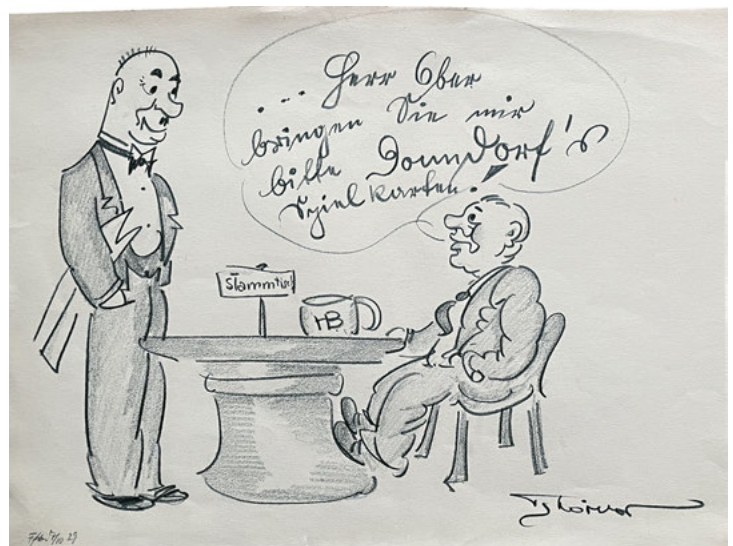 ... Herr Ober
bringen Sie mir
bitte Dondorf's
Spielkarten!
Stammtisch
HB